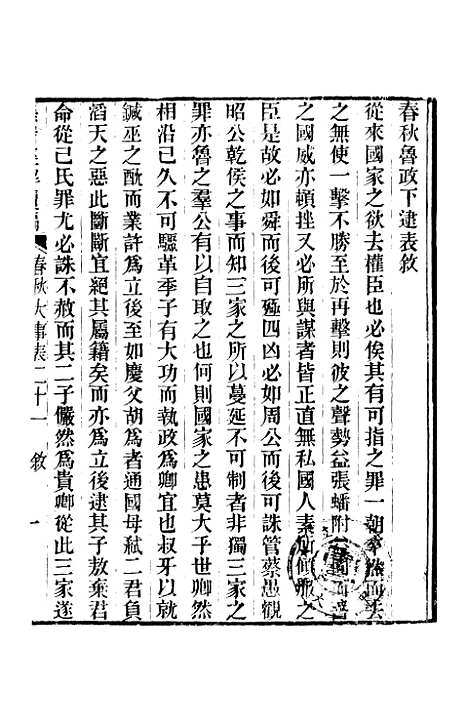 春秋魯政下逮表敘
從來國家之欲去權臣也必俟其有可指之罪一朝卒然而去
之無使一擊不勝至於再擊則彼之聲勢益張蟠附益固而普
之國威亦頓挫又必所與謀者皆正直無私國人素所傾服之
臣是故必如舜而後可殛四凶必如周公而後可誅管蔡愚觀
昭公乾侯之事而知三家之所以蔓延不可制者非獨三家之
罪亦魯之羣公有以自取之也何則國家之患莫大乎世卿然
相沿已久不可驟革季子有大功而執政爲卿宜也叔牙以就
鍼巫之酖而業許爲立後至如慶父胡爲者通國母弒二君負
滔天之惡此斷斷宜絕其屬籍矣而亦爲立後逮其子敖棄君
命從己氏罪尤必誅不赦而其二子儼然爲貴卿從此三家遂
春秋大事表二十一 敘 一